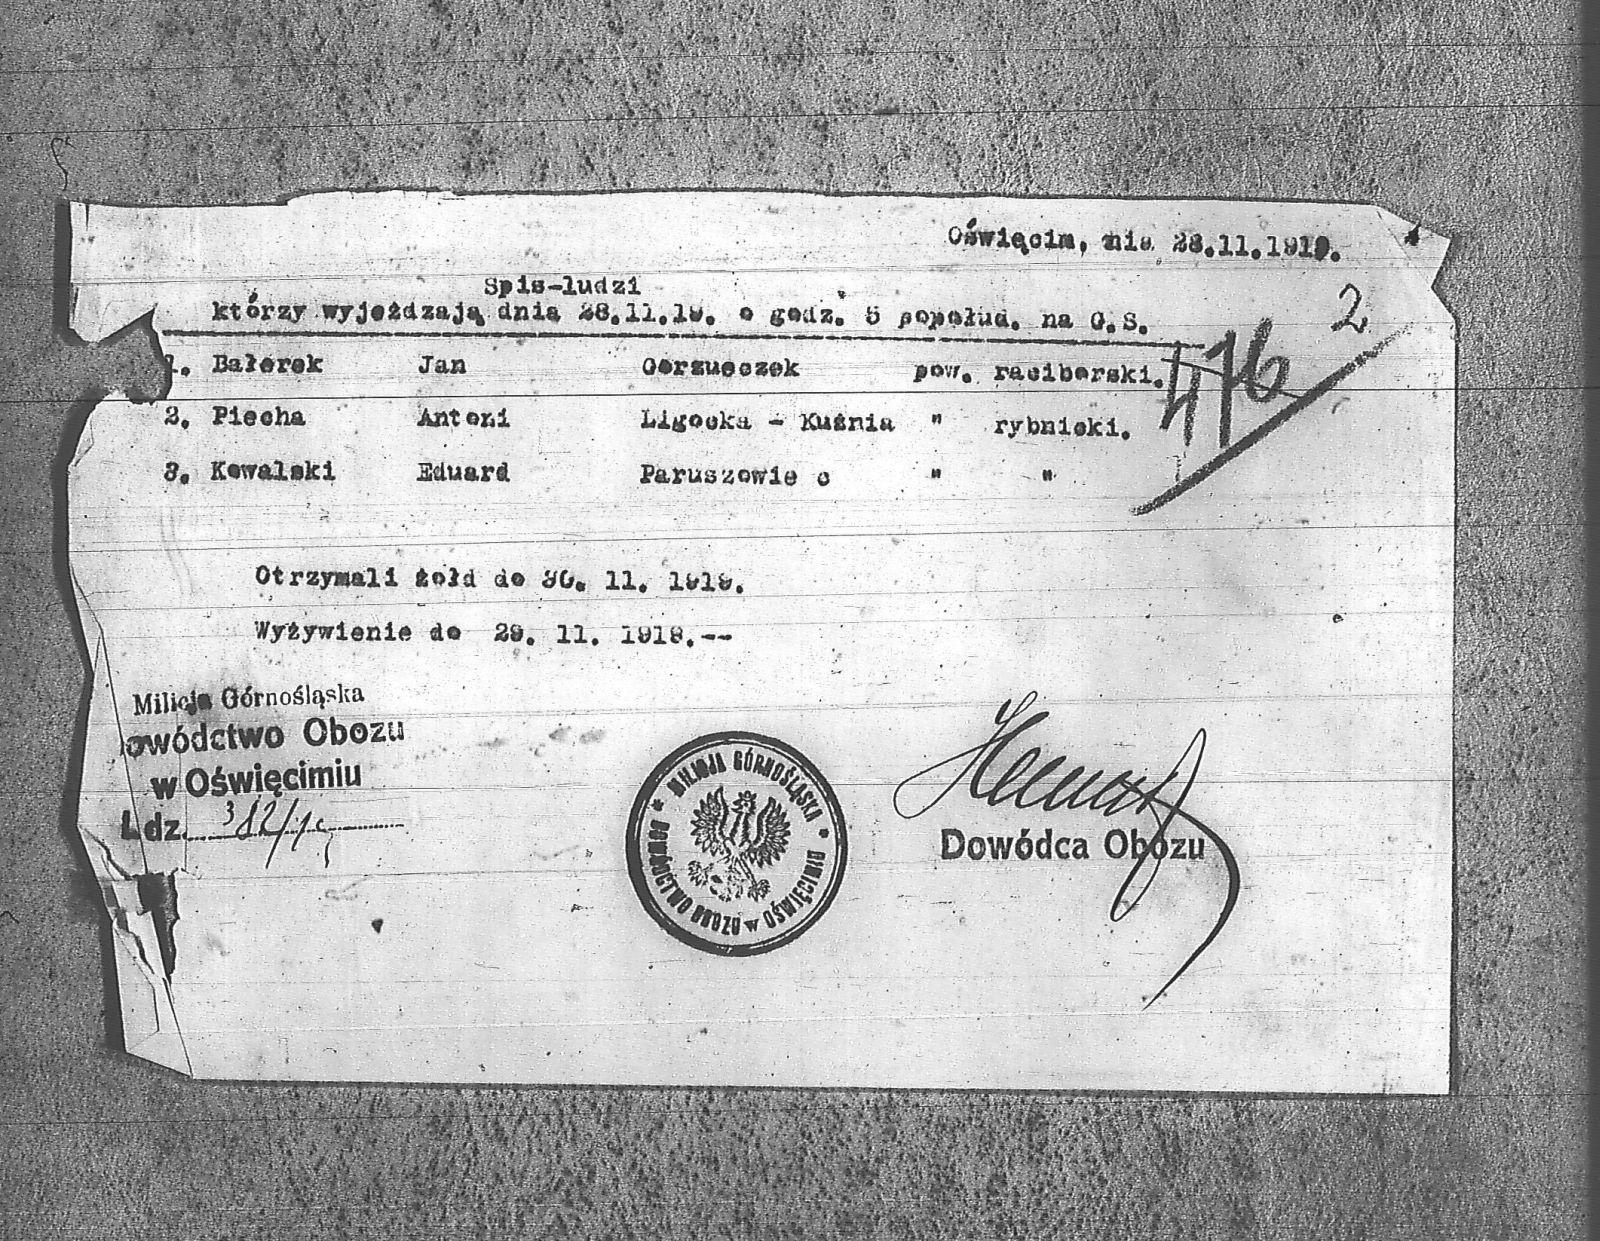 Oświęcim, nia 28.11.1919.
2
Spis-ludzi
którzy wyjeżdzają dnia 28.11.19. o godz. 5 popołud. na G.S.
476
1. Bałerek Jan Gorzueczek pow. raciborski.
2. Piecha Antoni Ligocka - Kuźnia " rybnicki.
3. Kowalski Eduard Paruszowie c " "
Otrzymali żołd do 30. 11. 1919.
Wyżywienie do 29. 11. 1919.--
Milicja Górnośląska
owództwo Obozu
w Oświęcimiu
Ldz. 382/19
* MILICJA GÓRNOŚLĄSKA * DOWÓDZTWO OBOZU w OŚWIĘCIMIU
Dowódca Obozu